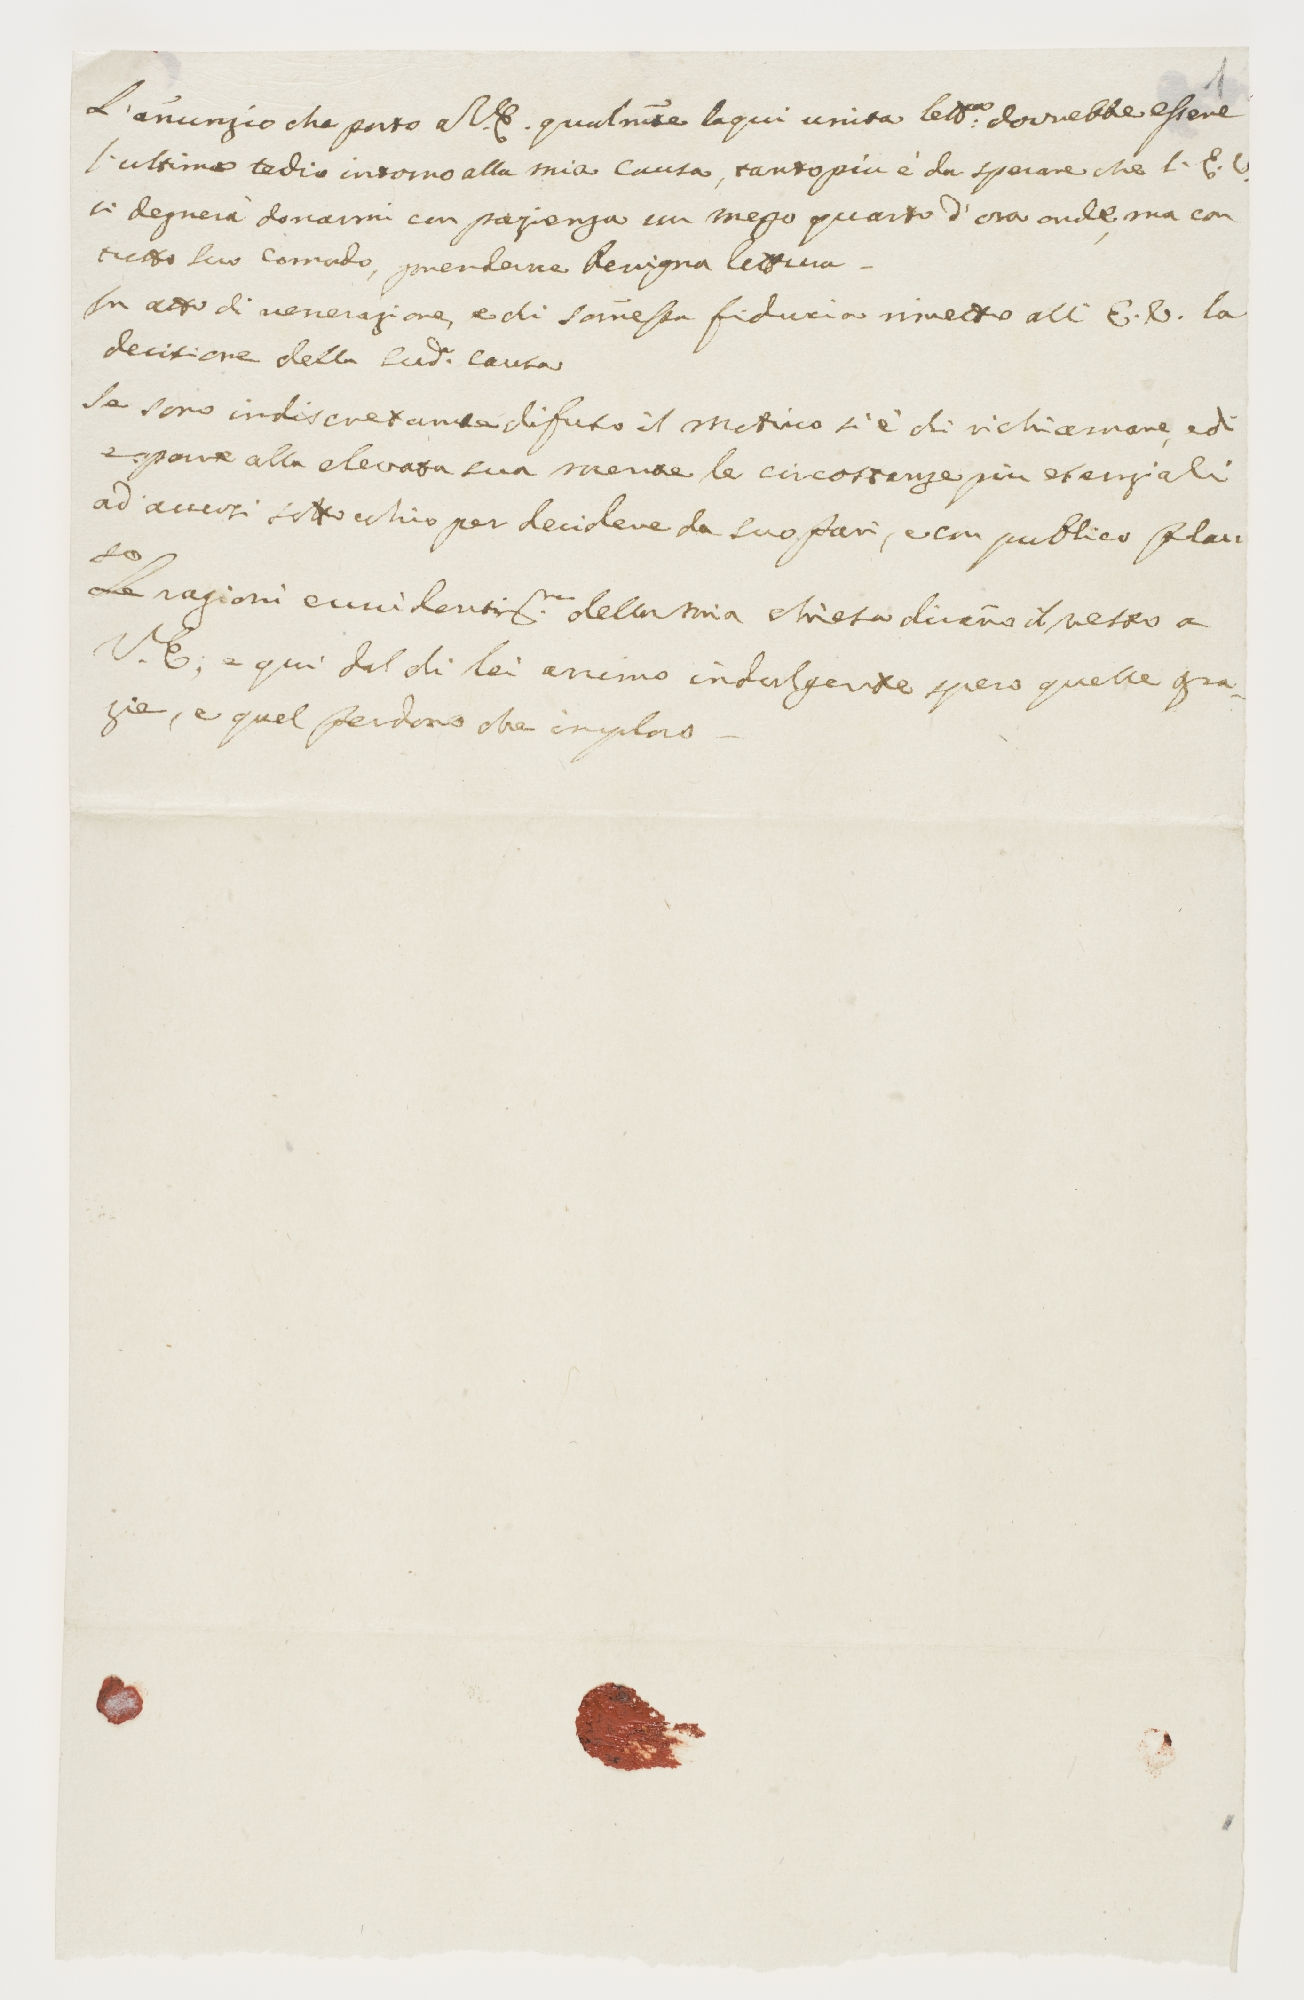 1
L'an̄unzio che porto a V.E. qualm̄te la qui unita lett.ra dovrebbe essere
l'ultimo tedio intorno alla mia causa, tanto più è da sperare che l'E.V.
si degnerà donarmi con pazienza un mezo quarto d'ora onde, ma con
tutto suo comodo, prenderne benigna lettura –
In atto di venerazione, e di som̄essa fiducia rimetto all'E.V. la
decisione della sud.a causa
Se sono indiscretam̄te difuso il motivo si è di richiamare, e di
esporre alla elevata sua mente le circostanze più esenziali
ad aversi sott'ochio per decidere da suo pari, e con publico plau
so
Le ragioni evvidentiss.me della mia chiesa diran̄o il resto a
V.E., e qui dal di lei animo indulgente spero quelle gra-
zie, e quel perdono che imploro –